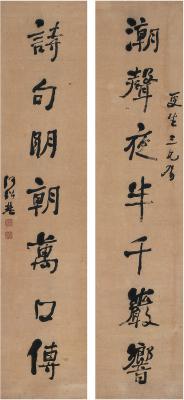 潮聲夜半千巖響
更生三兄屬
詩句明朝萬口傳
何紹基